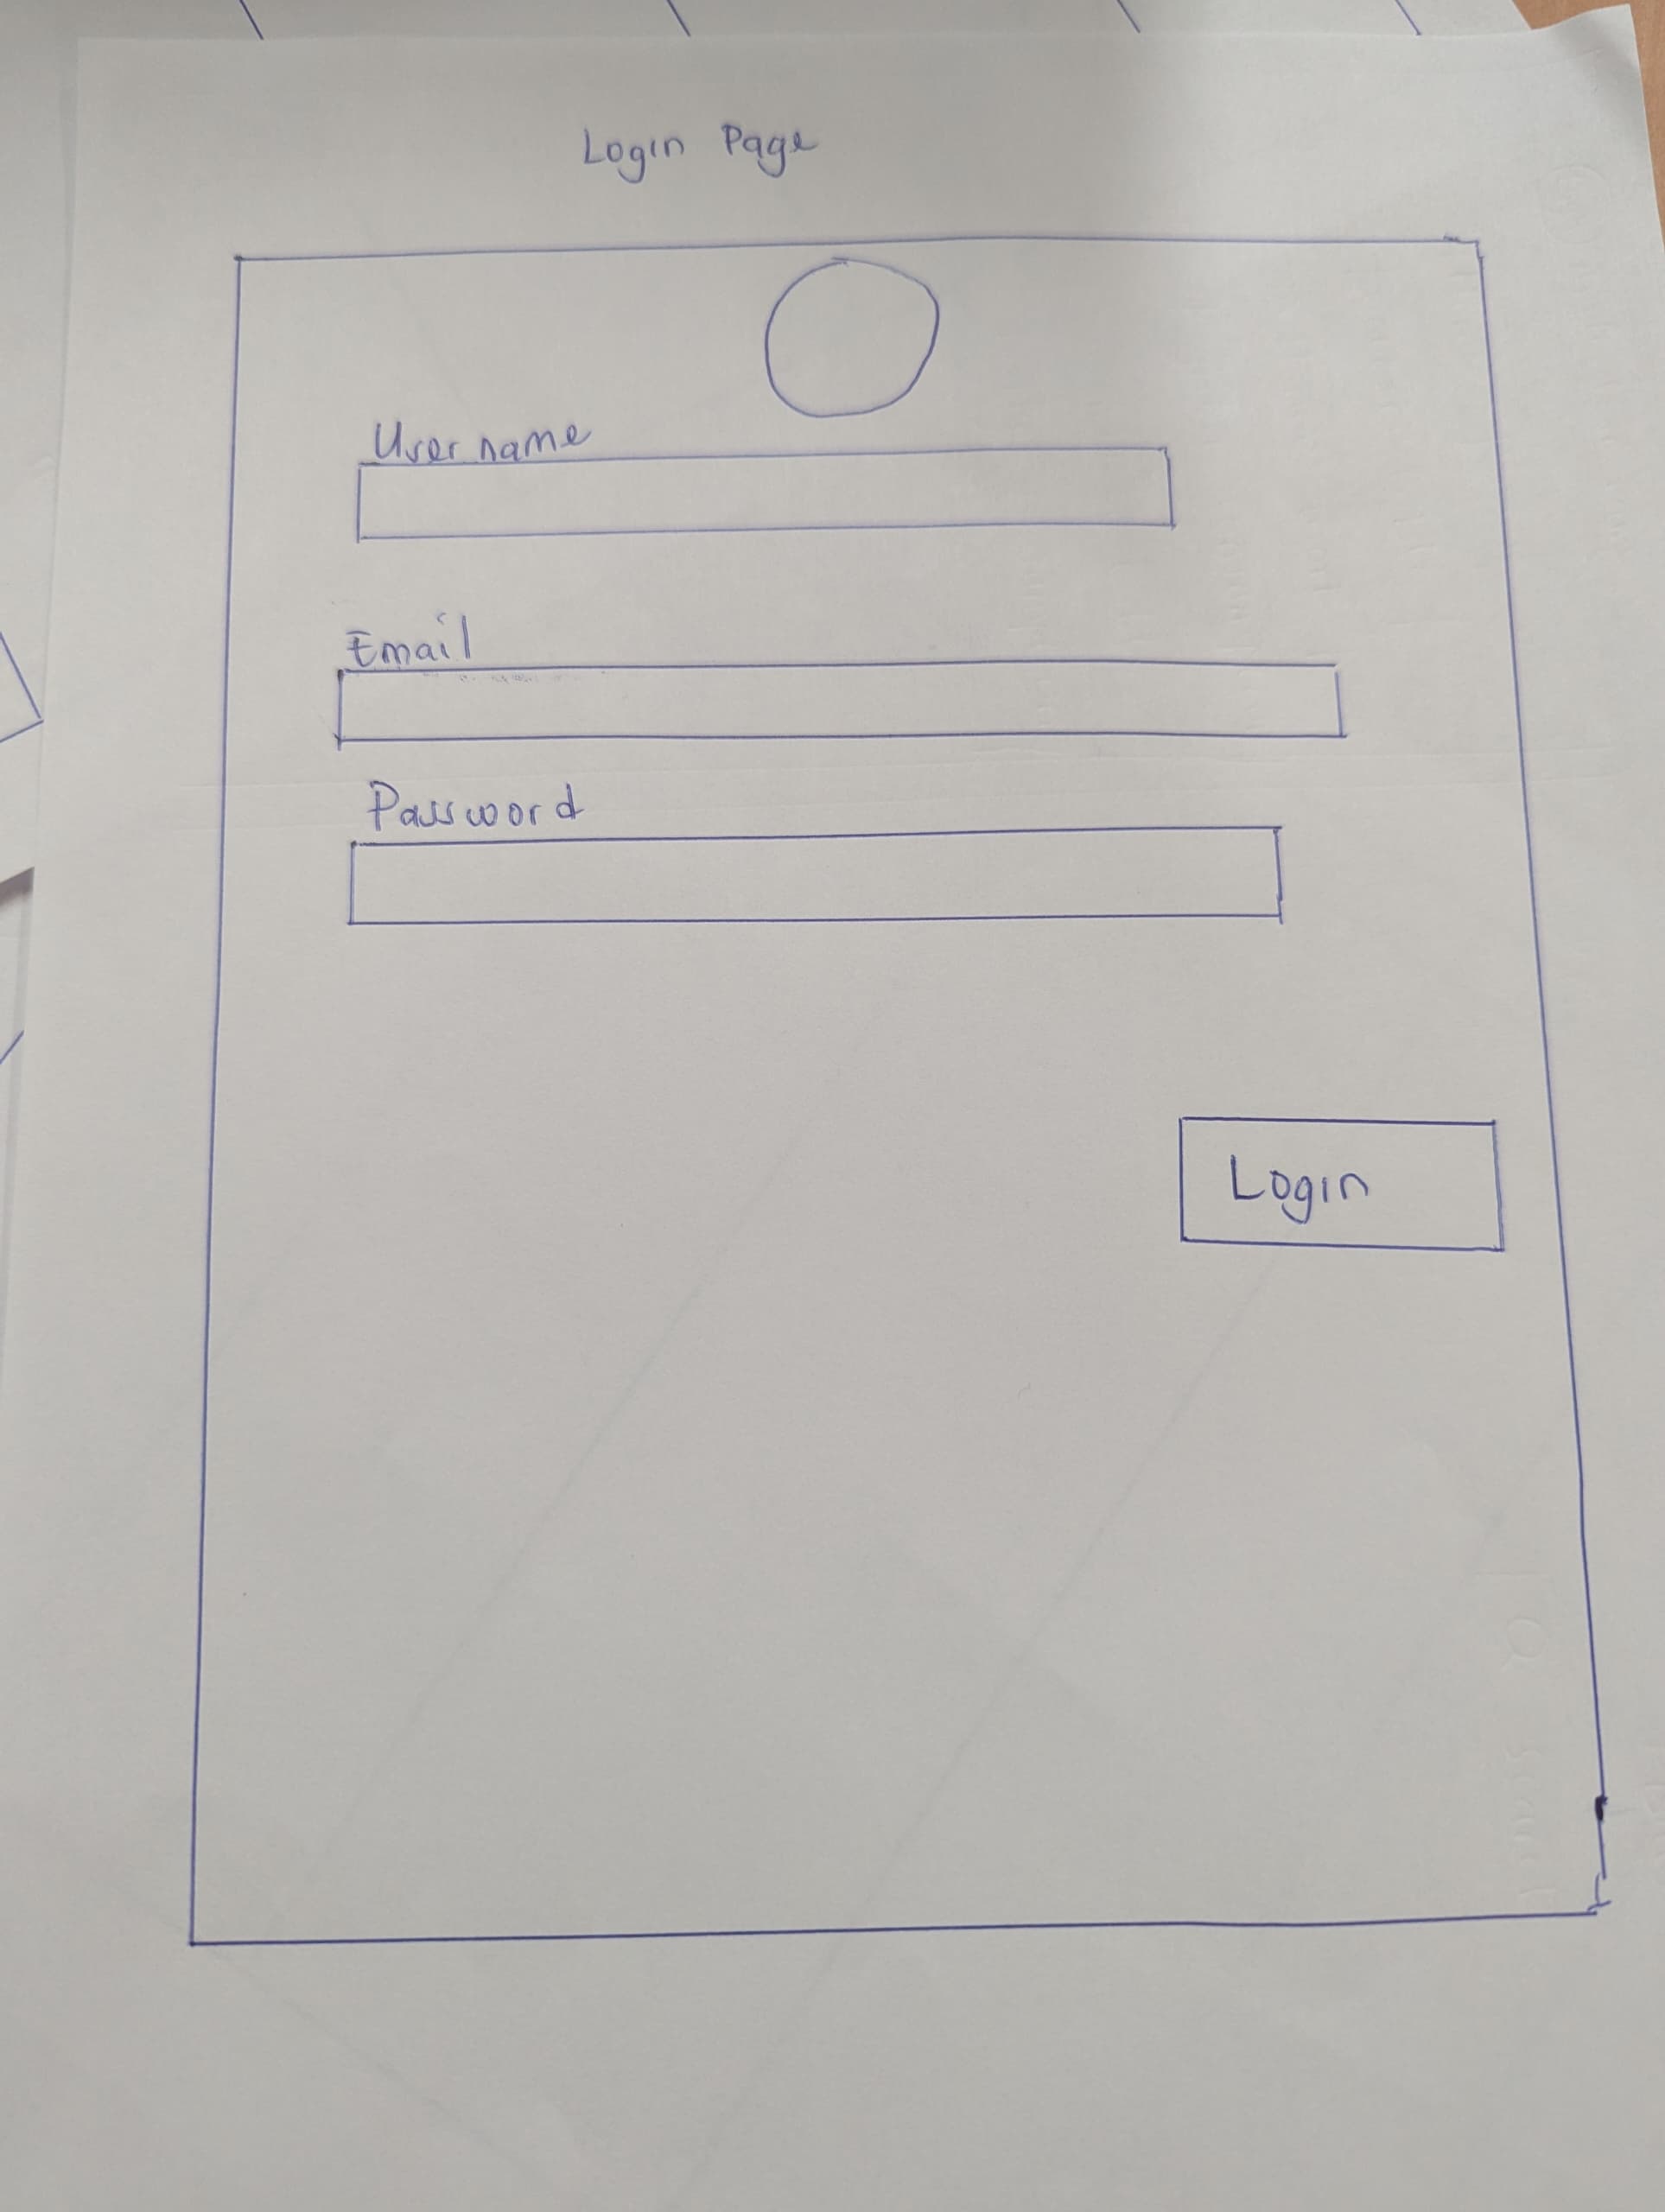 Login Page
Username
Email
Password
Login